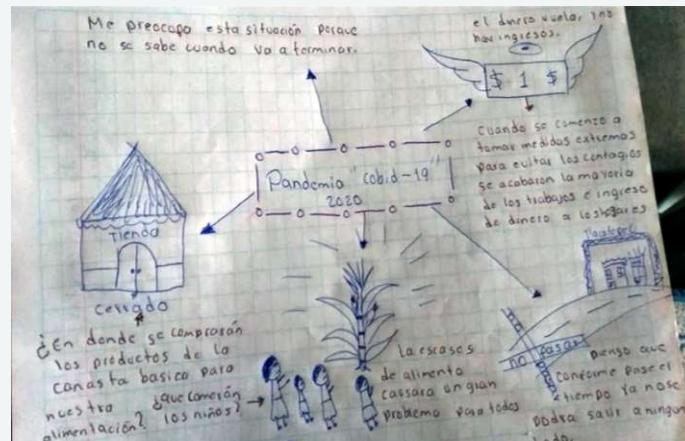 Me preocupa esta situación porque
no se sabe cuando va a terminar.
el dinero vuela, y no
hay ingresos.
$ 1 $
Cuando se comenzo a
tomar medidas extremas
para evitar los contagios
se acabaron la mayoria
de los trabajos e ingreso
de dinero a los hogares
Pandemia "cobid-19"
2020
Tienda
cerrado
¿En donde se comprarán
los productos de la
canasta basica para
nuestra
alimentación?
¿que comerán
los niños?
La escases
de alimento
causara un gran
problema para todos
no pasar
pienso que
conforme pase el
tiempo ya no se
podra salir a ningun